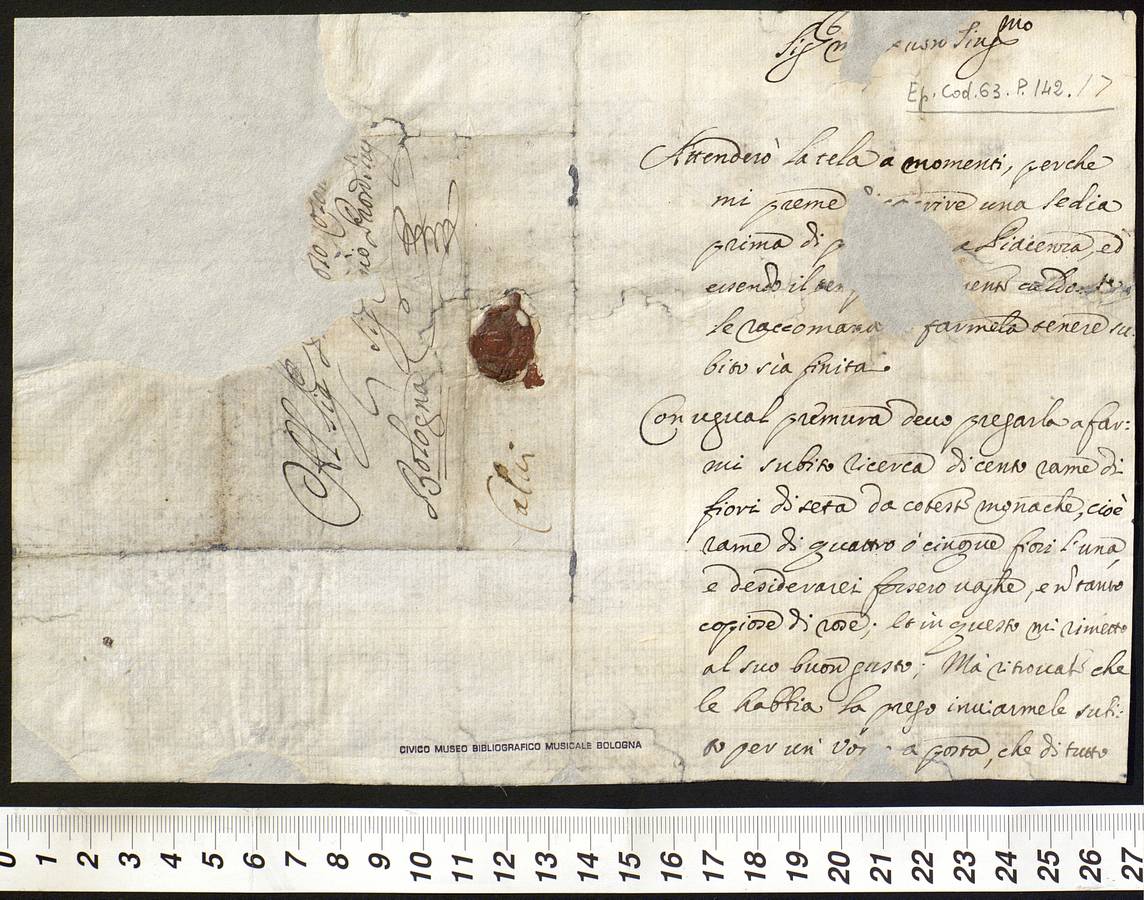 Ep. Cod. 63. P. 142. 17
Attenderò la tela a momenti, perche
mi preme una sedia
prima di Piacenza, ed
essendo il caldo
le raccoman farmela tenere su
bito sia finita.
Con ugual premura devo pregarla a far:
mi subito ricerca di cento rame di
fiori di seta da coteste monache, cioè
rame di quattro ó cinque fiori l'una
e desiderarei fossero vaghe, e tanto
copiose di rose; et in questo mi rimetto
al suo buon gusto; Mà ritrovate che
le habbia la prego inviarmele subi:
to per un' a posta, che di tutto
All
Sig
Bologna
CIVICO MUSEO BIBLIOGRAFICO MUSICALE BOLOGNA
0 1 2 3 4 5 6 7 8 9 10 11 12 13 14 15 16 17 18 19 20 21 22 23 24 25 26 27